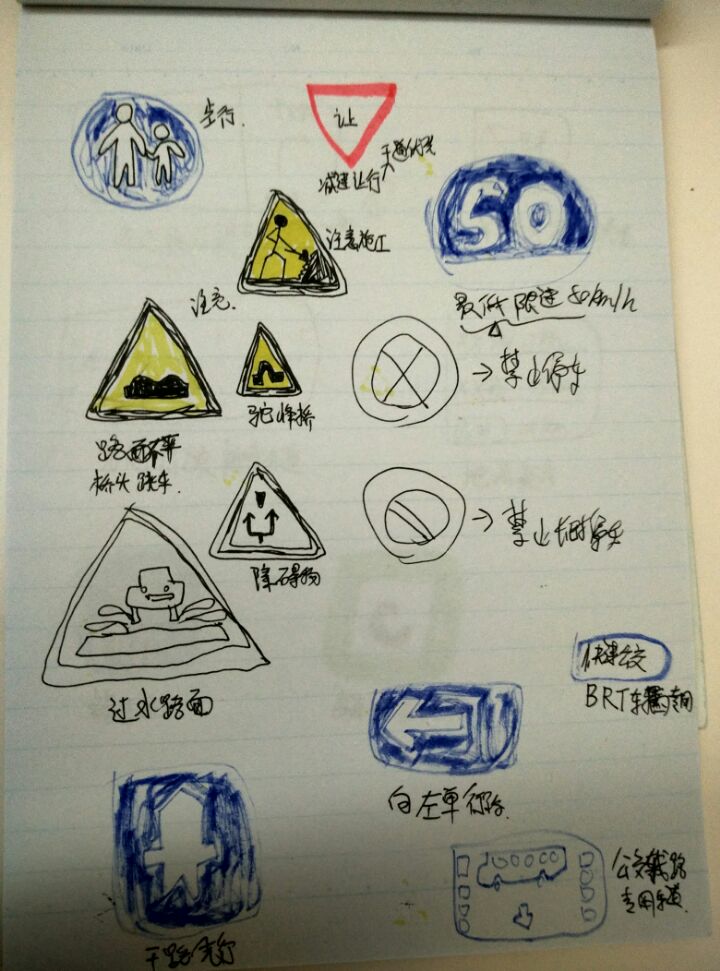 步行
让
减速让行
干道优先
50
注意施工
最低限速50km/h
注意
禁止停车
驼峰桥
路面不平
桥头跳车
禁止长时停车
障碍物
过水路面
快速公交
BRT车辆专用
向左单行
公交线路
专用车道
干路先行